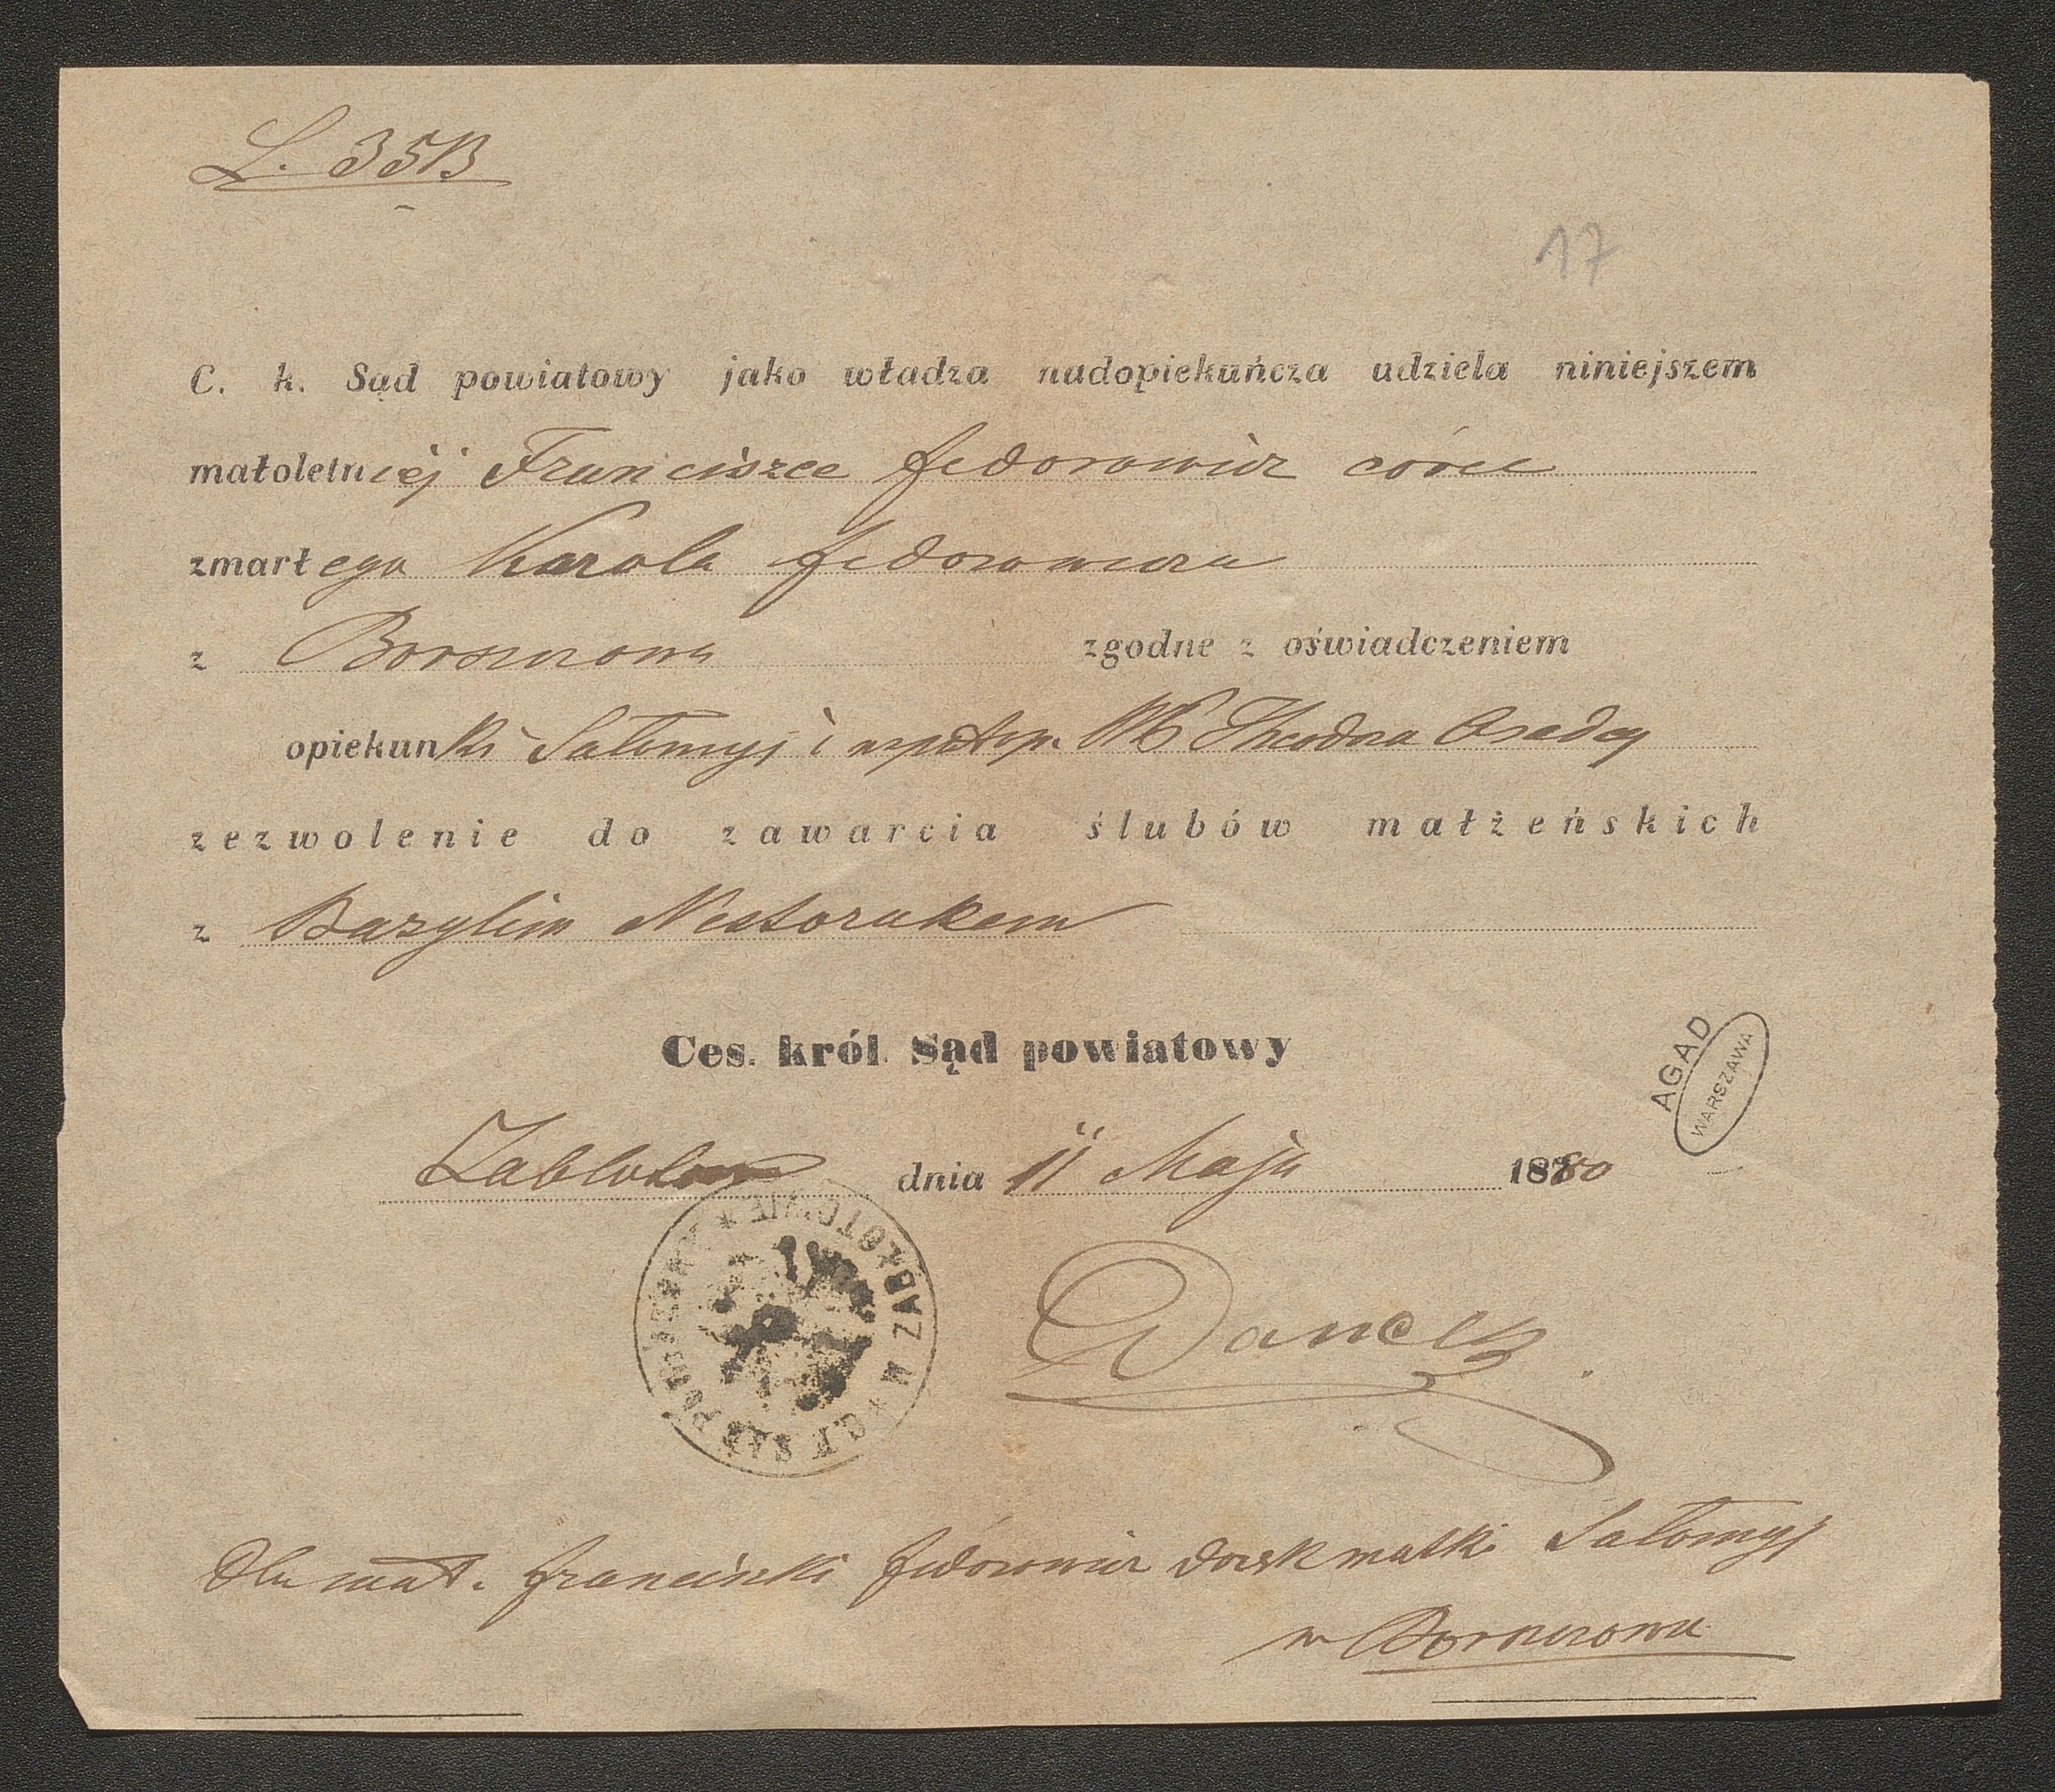 L. 3513
17
C. k. Sąd powiatowy jako władza nadopiekuńcza udziela niniejszem
małoletniej Franciszce Fedorowicz córce
zmarłego Karola Fedorowicza
z Borszczowa zgodne z oświadczeniem
opiekunki Salomyi i Theodora
zezwolenie do zawarcia ślubów małżeńskich
z Bazylim Nestorukem
Ces. król. Sąd powiatowy
AGAD
WARSZAWA
Zabłotow dnia 11 Maja 1880
C. K. SĄD POWIATOWY * W ZABŁOTOWIE *
Danek
Dla mał. Franciszki Fedorowicz do rąk matki Salomyi
w Borszczowie